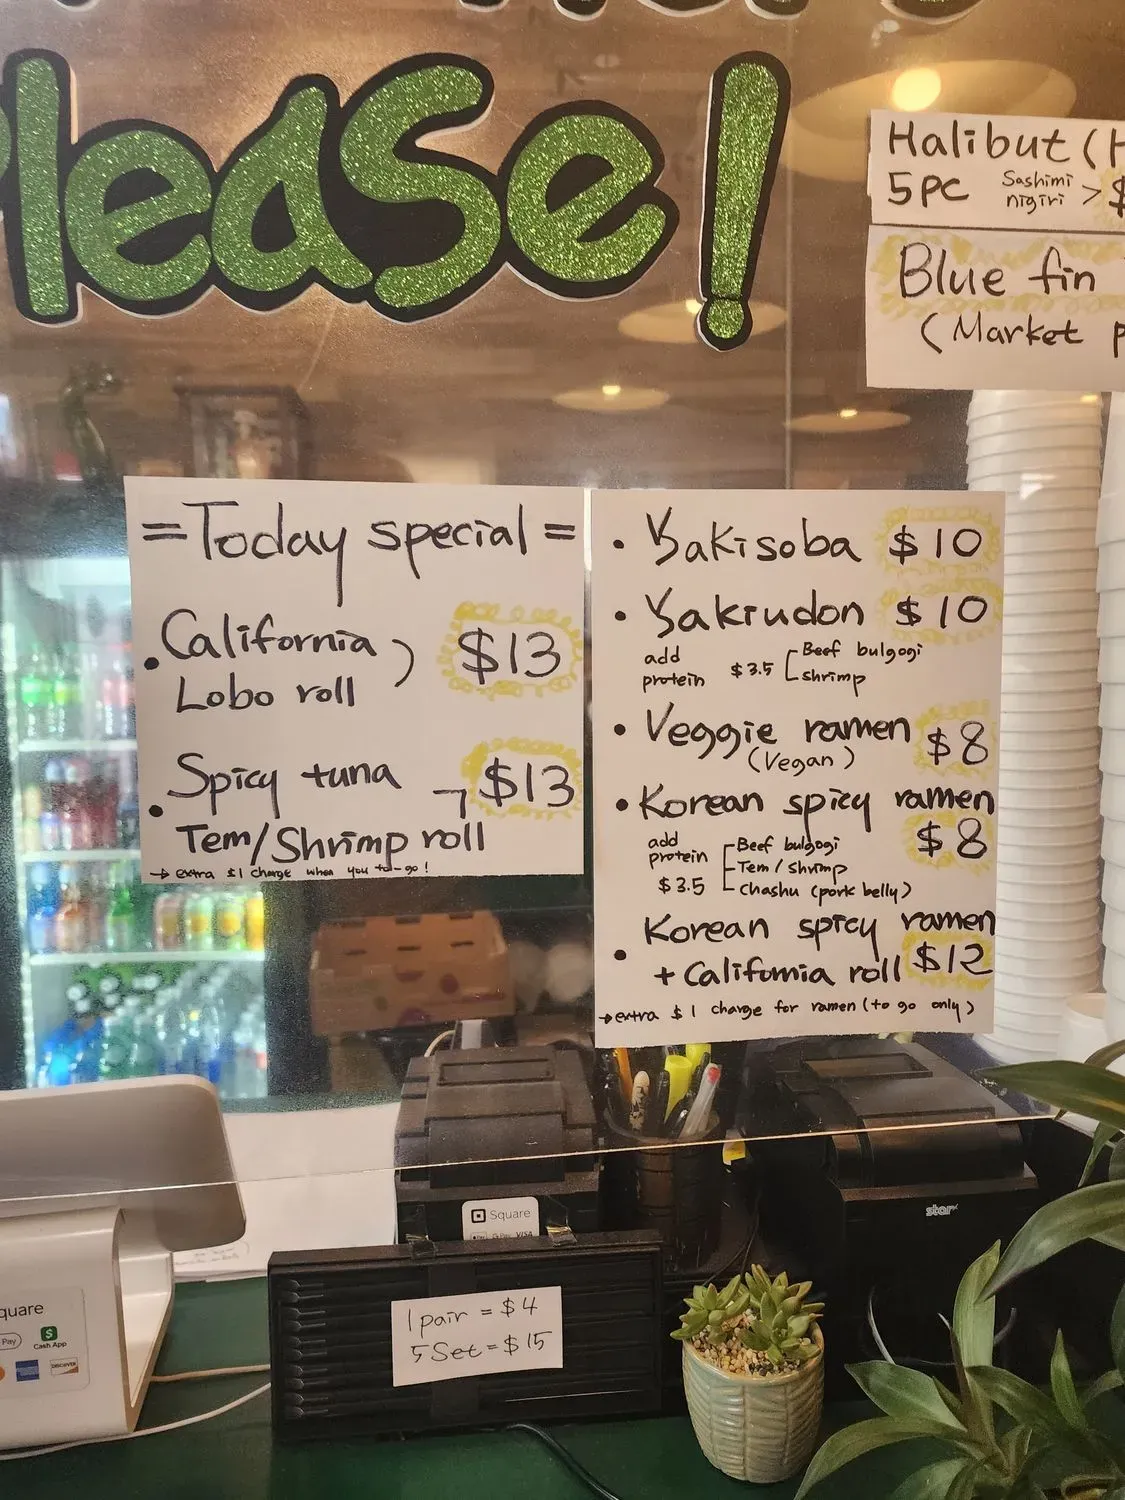 Please!
Halibut (H
5PC Sashimi nigiri > $
Blue fin
(Market p
= Today special =
• California
Lobo roll ) $13
• Spicy tuna
Tem/Shrimp roll $13
→ extra $1 charge when you to-go!
• Yakisoba $10
• Yakiudon $10
add protein $3.5 Beef bulgogi
shrimp
• Veggie ramen $8
(Vegan)
• Korean spicy ramen
$8
add protein $3.5
Beef bulgogi
Tem/shrimp
Chashu (pork belly)
• Korean spicy ramen
+ California roll $12
→ extra $1 charge for ramen (to go only)
Square
Pay G Pay VISA
star
1 pair = $4
5 Set = $15
quare
Pay Cash App
DISCOVER